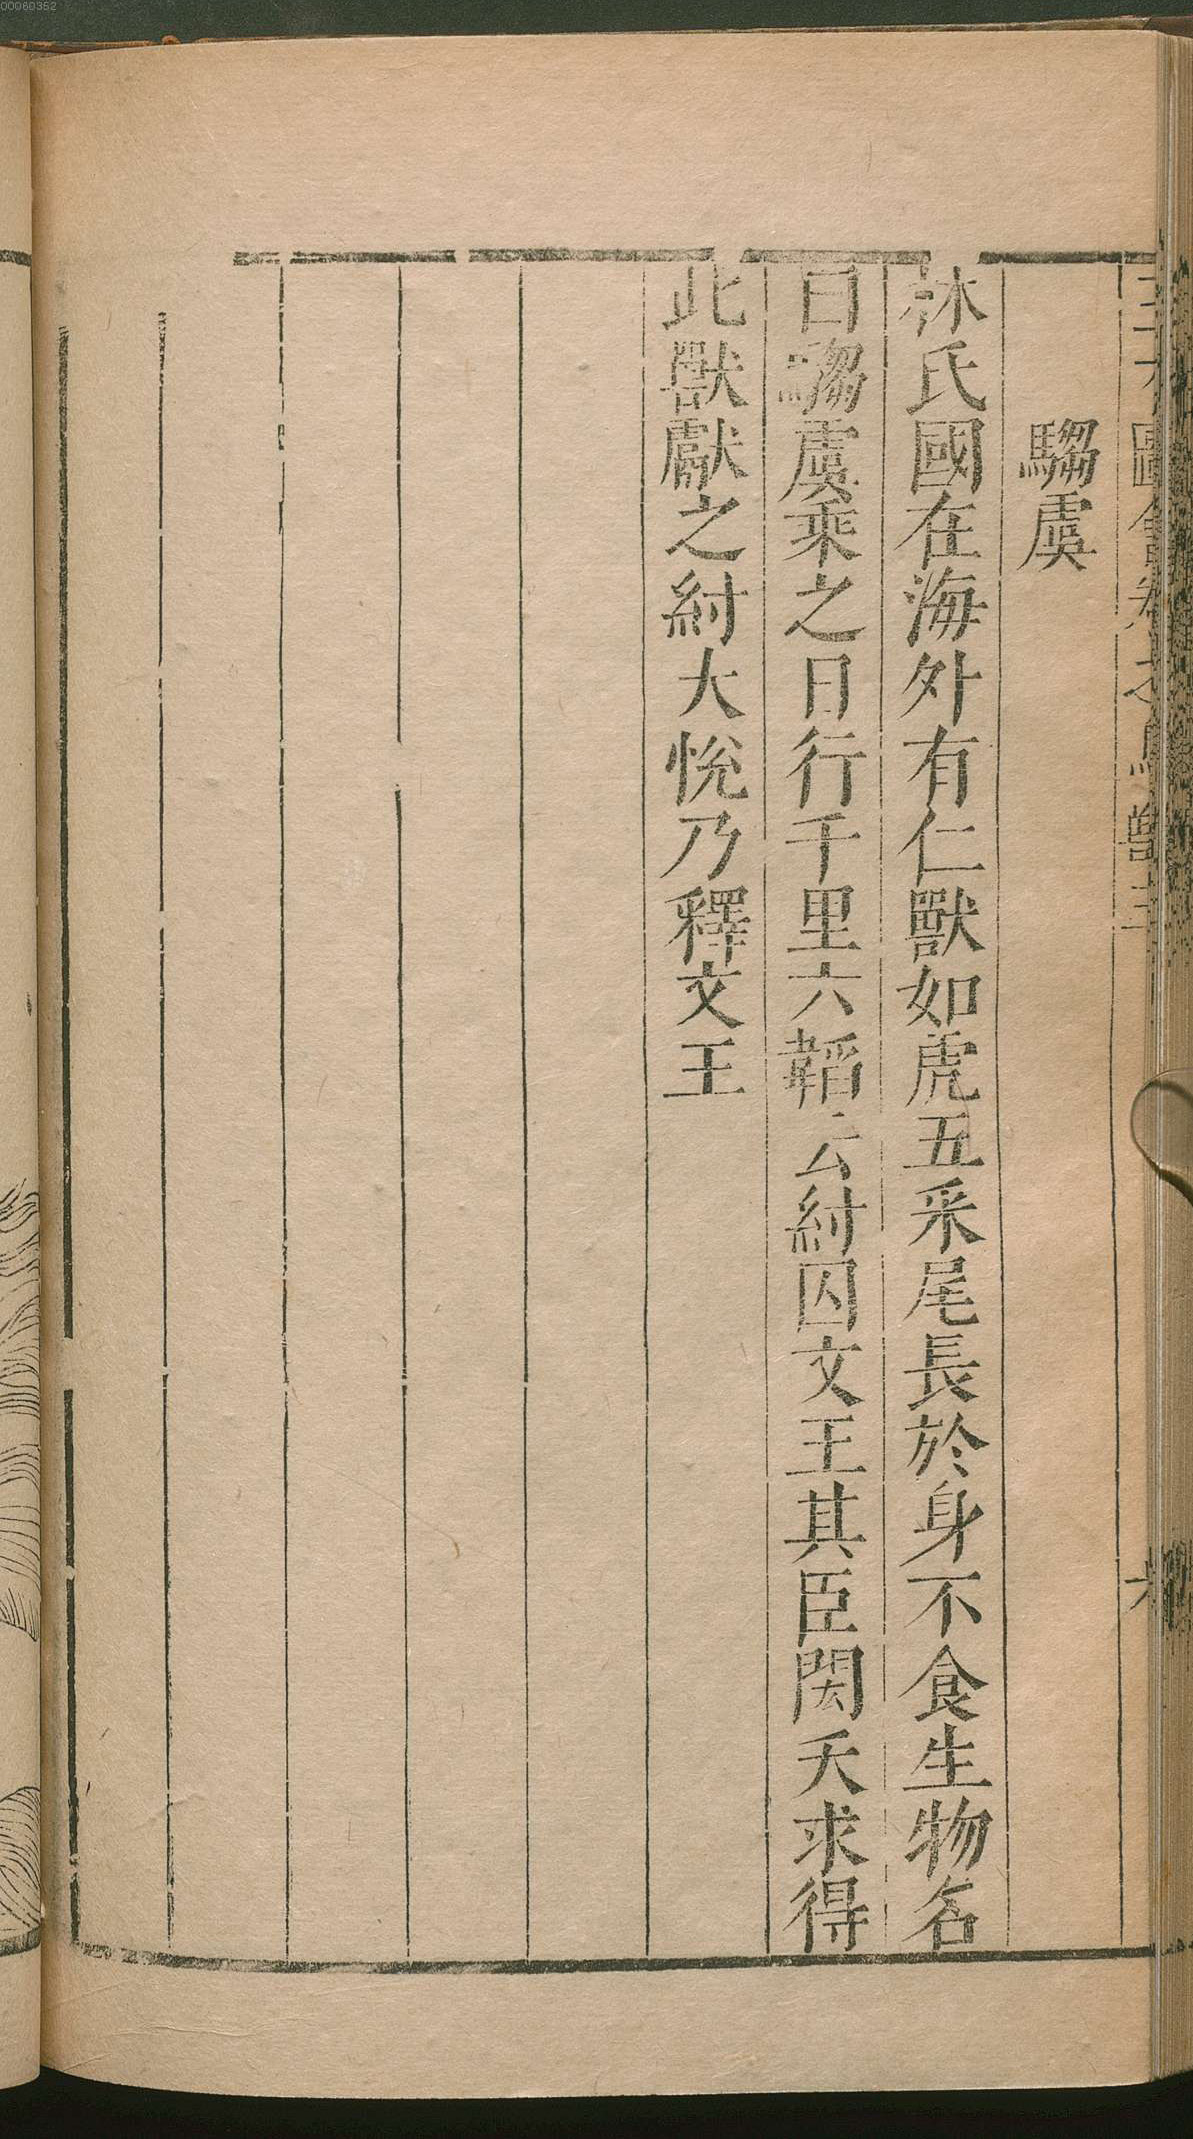 騶虞
林氏國在海外有仁獸如虎五采尾長於身不食生物名
曰騶虞乘之日行千里六韜云紂囚文王其臣閎夭求得
此獸獻之紂大悅乃釋文王
00060352